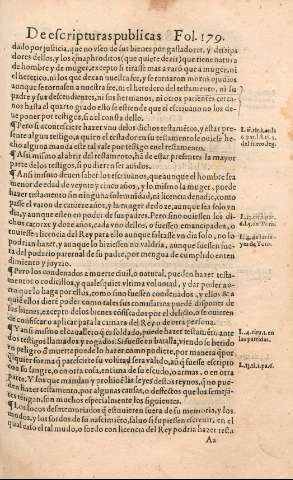 De escripturas publicas Fol. 179.
dado por justicia, que no vsen de sus bienes por gastadores, y dissipa
dores dellos, y los emaphroditos (que quiere dezir) que tiene natura
de hombre y de muger, excepto si tirasse mas a varõ que a muger, ni
el heretico, ni los que dexan nuestra fee, y se tornaron moros o judios
aunque se tornassen a nuestra fee, ni el heredero del testamento, ni su
padre y sus descendientes, ni sus hermanos, ni otros parientes cerca-
nos hasta el quarto grado esto se estiende que el escriuano no los de-
ue poner por testigos, si a el consta dello.
¶ Pero si acontesciere hauer vno delos dichos testamẽtos, y estar pre-
sente algun testigo, a quien el testador en su testamento le ouiesse he-
cho alguna manda este tal vale por testigo en el testamento.
¶ Assi mismo al abrir del testamento, ha de estar presentes la mayor
parte delos testigos, si pudieren ser auidos.
¶ An si mismo deuen saber los escriuanos, que aunque el hombre sea
menor de edad de veynte y cinco años, y lo mismo la muger, puede
hazer testamento sin ninguna solemnidad, ni licencia de nadie, como
passe el varon de catorze años, y la muger de doze, aunque sea solo vn
dia, y aunque esten en poder de sus padres. Pero si no ouiessen los di-
chos catorze y doze años, cada vno dellos, o fuessen emancipados, o
ouiessen licencia del Rey para ello aunque falsasse vn dia solo, no lo
podrian hazer, y aunque lo hiziessen no valdria, aunque fuessen fue-
ra del poderio paternal de su padre, por mengua de cumplido enten
dimiento y juyzio.
¶ Pero los condenados a muerte ciuil, o natural, pueden hazer testa-
mentos o codicillos, y qualesquier vltima voluntad, y dar poder a
que lo haga por ellos, como si no fuessen condenados, y el
quiẽ ellos dierẽ poder como tales sus comissarios puede disponer de
sus bienes, excepto delos bienes cõfiscados por el delicto, o se ouieren
de confiscar o aplicar para la camara del Rey o de otra persona.
¶ Y an si mismo el cauallero, q̃ es soldado, puede hazer testamẽto ante
dos testigos llamados y rogados. Si fuesse en batalla, viendo se herido
en peligro d̃ muerte puede lo hazer como pudiere, por manera q̃ por
qualquier forma q̃ paresciere su voluntad sera valido, aũ q̃ fuesse escripto
con su sangre, o en otra cosa, encima de su escudo, o armas, o en otra
parte. Y los que mandan y prohibẽ las leyes destos reynos, q̃ no pue-
dan hazer testamento, por algunas causas, o deffectos que los semeja-
tes tengan, son muchos especialmente los siguientes.
¶ Los locos desmemoriados q̃ estuuieren fuera de su memoria, y los
mudos, y los sordos de su nascimiẽto, saluo si supiessen escreuir, en el
qual caso el tal mudo, o sordo con licencia del Rey podria hazer testa
Aa